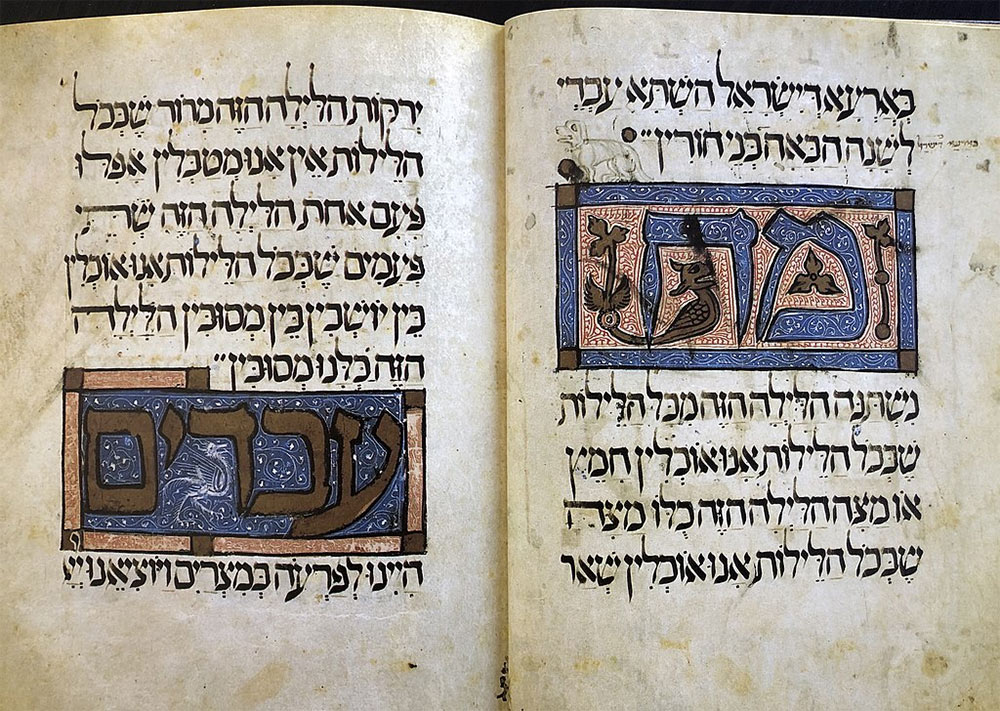 בארעא דישראל השתא עבדי
לשנה הבאה בני חורין
מה
נשתנה הלילה הזה מכל הלילות
שבכל הלילות אנו אוכלין חמץ
או מצה הלילה הזה כלו מצה
שבכל הלילות אנו אוכלין שאר
ירקות הלילה הזה מרור שבכל
הלילות אין אנו מטבלין אפלו
פעם אחת הלילה הזה שתי
פעמים שבכל הלילות אנו אוכלין
בין יושבין בין מסובין הלילה
הזה כלנו מסובין
עבדים
היינו לפרעה במצרים ויוציאנו